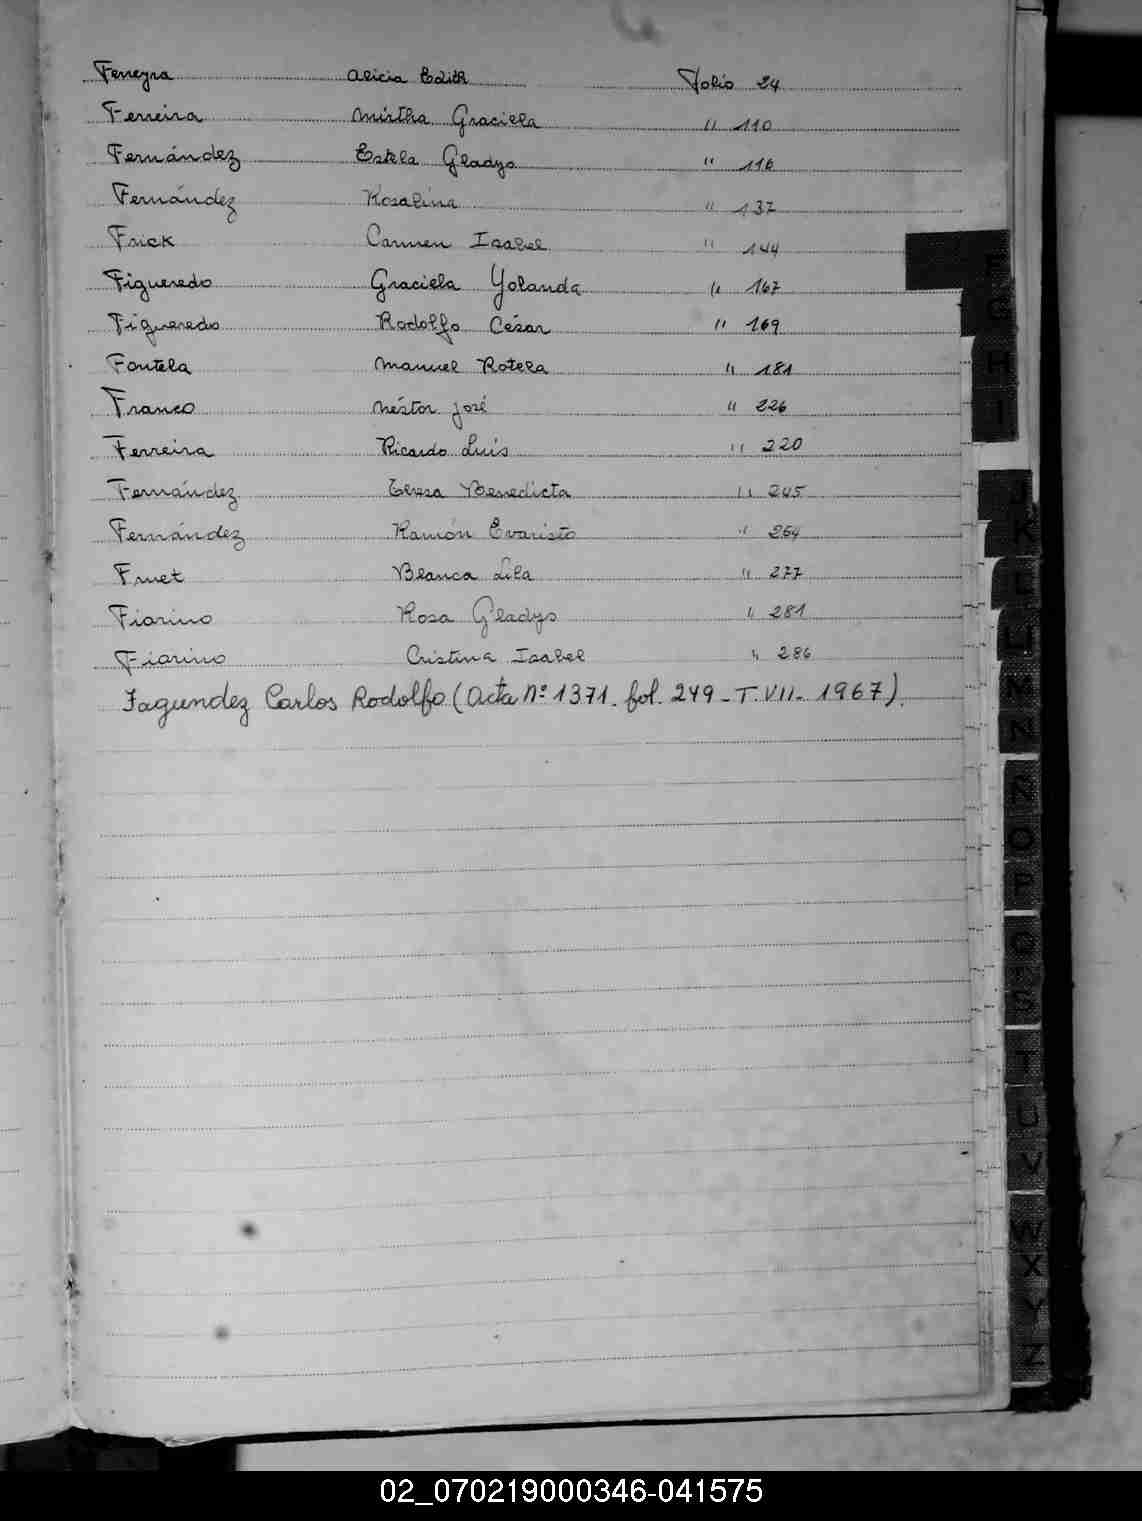 Ferreyra Alicia Edith Folio 24
Ferreira Mirtha Graciela " 110
Fernández Estela Gladys " 116
Fernández Rosalina " 137
Frick Carmen Isabel " 144
Figueredo Graciela Yolanda " 167
Figueredo Rodolfo César " 169
Fontela Manuel Rotela " 181
Franco Néstor José " 226
Ferreira Ricardo Luis " 220
Fernández Teresa Benedicta " 245
Fernández Ramón Evaristo " 264
Fruet Blanca Lila " 277
Fiorino Rosa Gladys " 281
Fiorino Cristina Isabel " 286
Fagundez Carlos Rodolfo (Acta Nº 1371. fol. 249 - T. VII - 1967).
F
G
H
I
J
K
L
LL
M
N
Ñ
O
P
Q
R
S
T
U
V
W
X
Y
Z
02_070219000346-041575